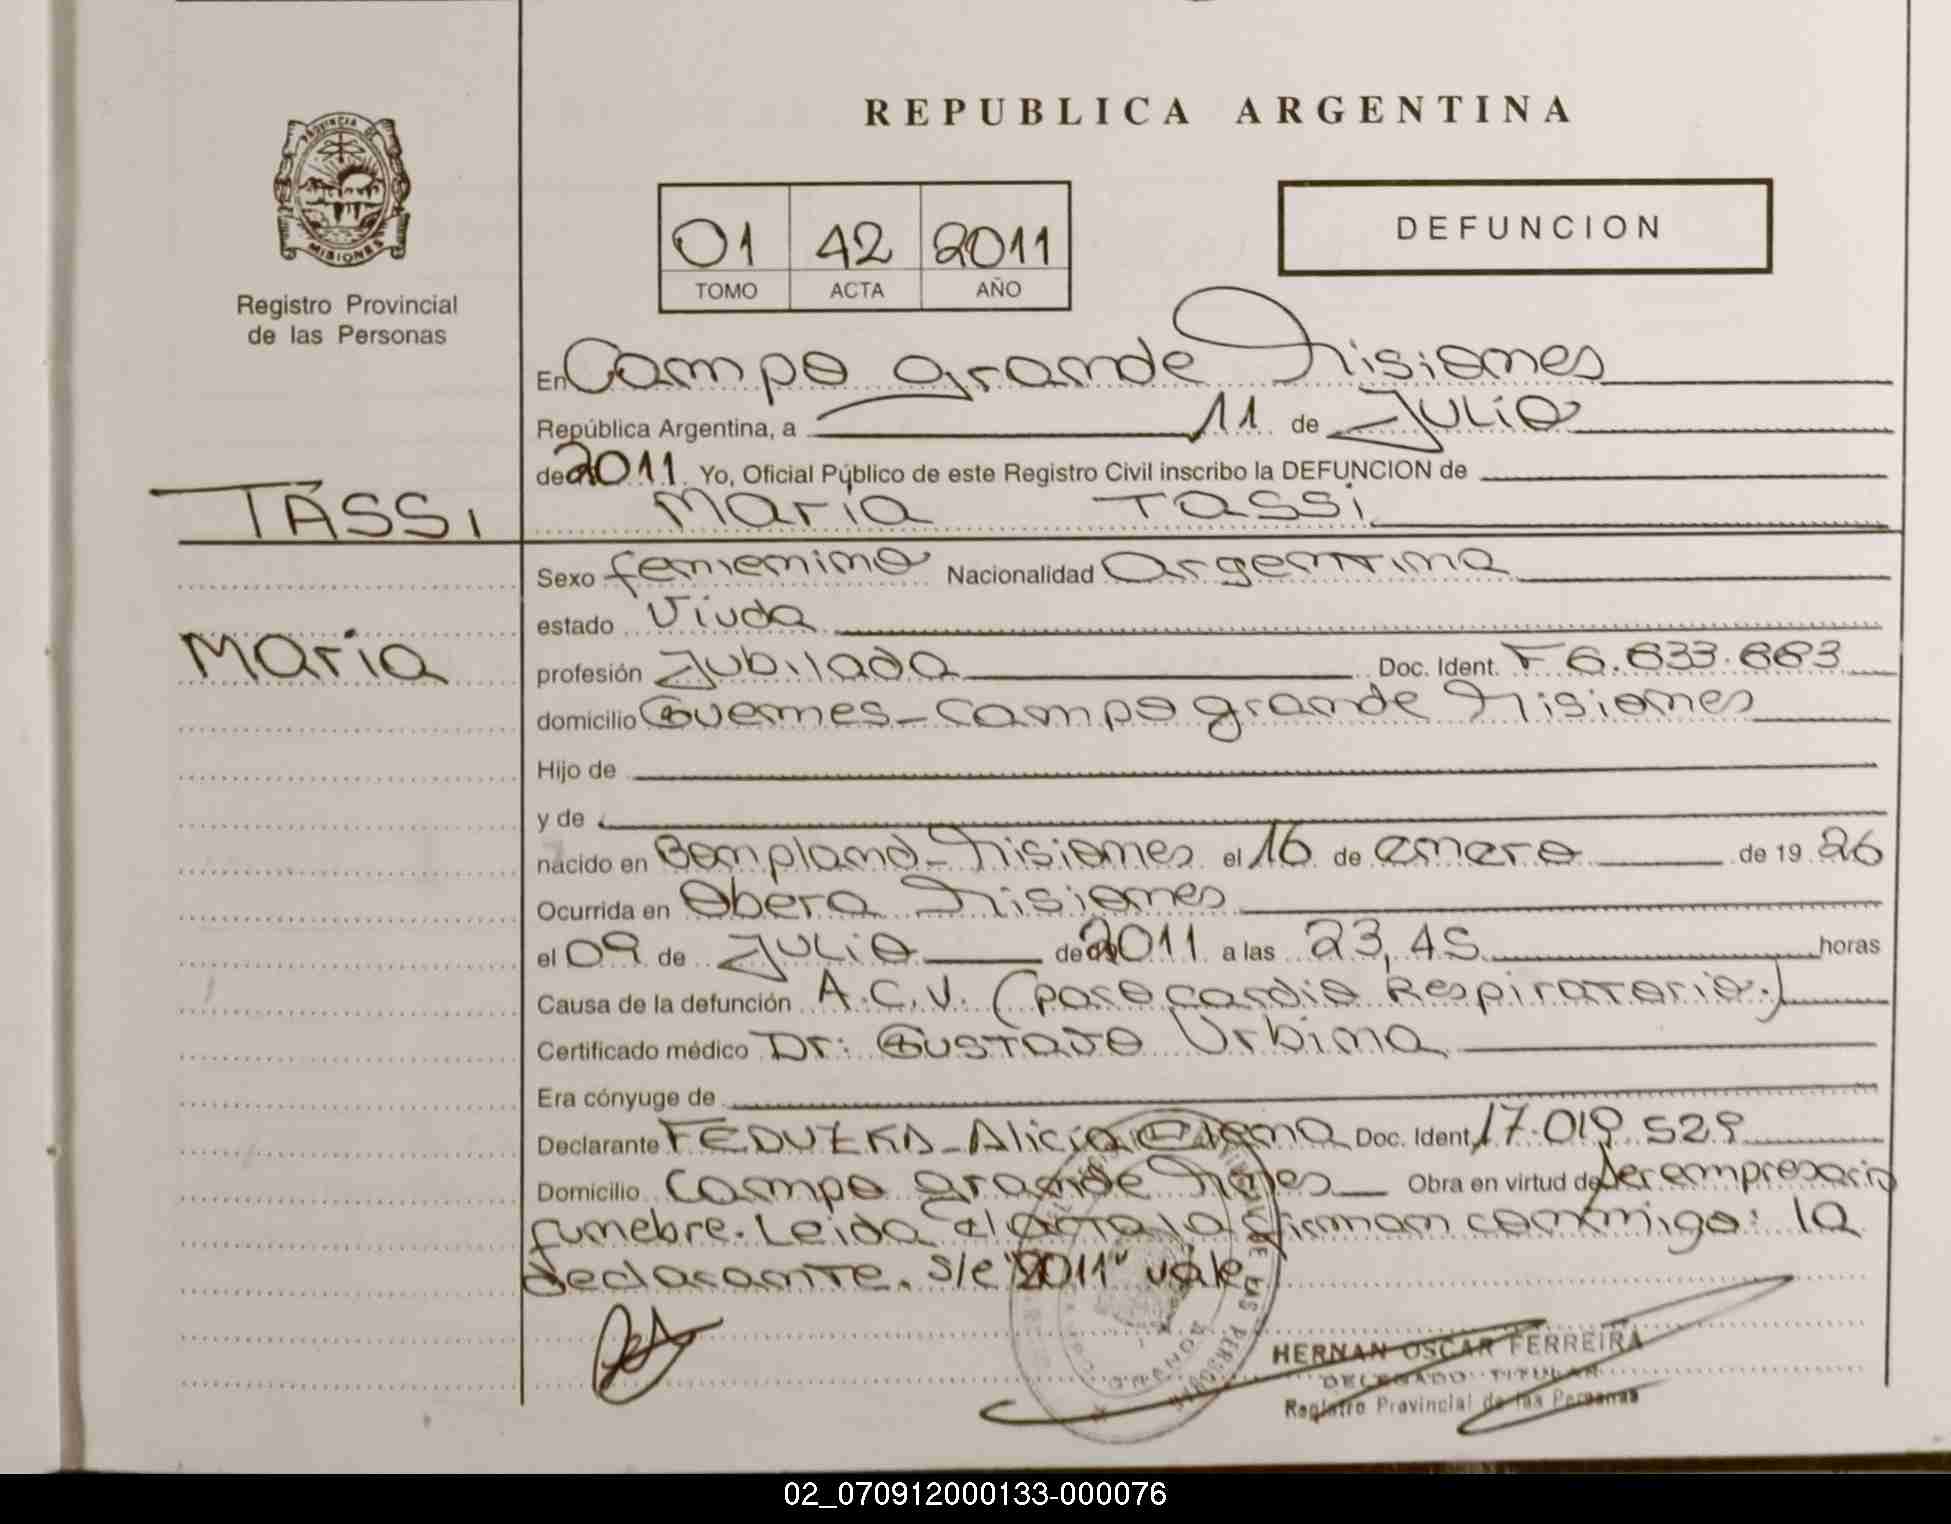 REPUBLICA ARGENTINA
PROVINCIA DE
MISIONES
Registro Provincial
de las Personas
01 42 2011
TOMO ACTA AÑO
DEFUNCION
En Campo grande Misiones
República Argentina, a 11 de Julio
de 2011 Yo, Oficial Público de este Registro Civil inscribo la DEFUNCION de
TASSI
Maria Tassi
Maria
Sexo femenino Nacionalidad Argentina
estado Viuda
profesión Jubilada Doc. Ident. F 6.633.663
domicilio Guemes - Campo grande Misiones
Hijo de
y de
nacido en Bompland - Misiones el 16 de enero de 19 26
Ocurrida en Obera Misiones
el 09 de Julio de 2011 a las 23,45 horas
Causa de la defunción A.C.V. (paro cardio Respiratorio.)
Certificado médico Dr: Gustavo Urbina
Era cónyuge de
Declarante FEDUZKA - Alicia Doc. Ident. 17.019.529
Domicilio Campo grande Mnes Obra en virtud de ser empresario
funebre. Leida el acta la firman conmigo: la
declarante. s/e "2011" vale
HERNAN OSCAR FERREIRA
DELEGADO TITULAR
Registro Provincial de las Personas
02_070912000133-000076